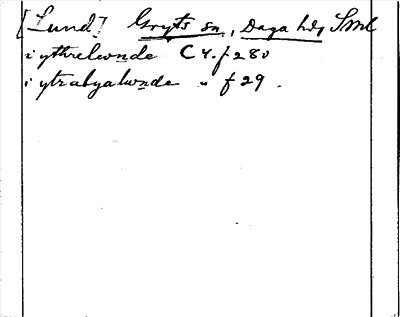 [Lund] Gryts sn, Daga hd, Sml
i ythrelwnde C 4. f 280
i ytrabyalwnde " f 29.